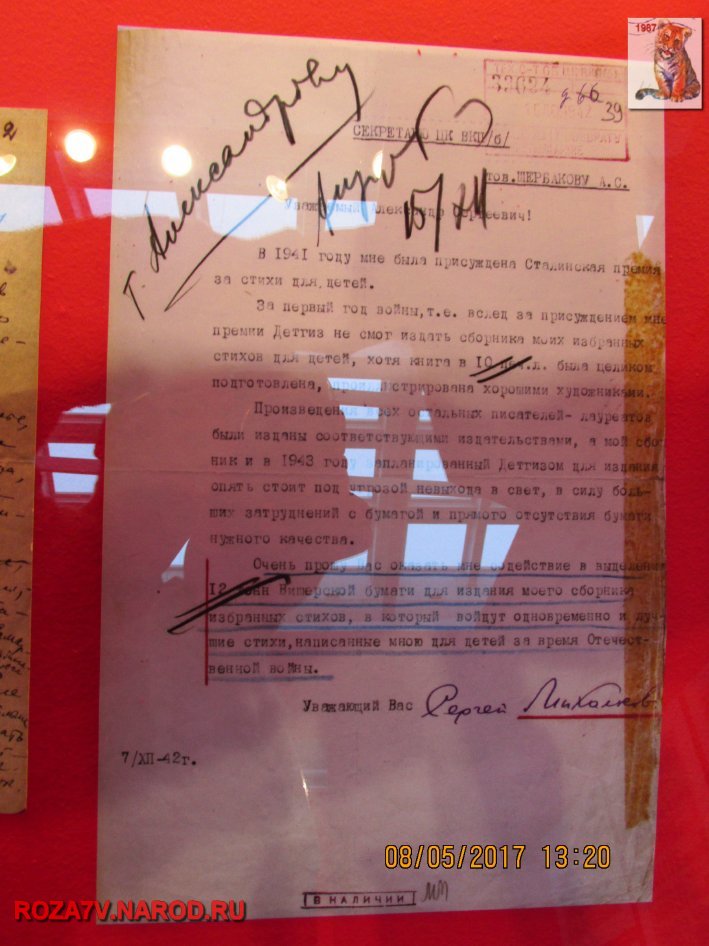 1987
39
Т. Александрову
15/XII
СЕКРЕТАРЮ ЦК ВКП/б/
тов. ЩЕРБАКОВУ А.С.
Уважаемый Александр Сергеевич!
В 1941 году мне была присуждена Сталинская премия
за стихи для детей.
За первый год войны, т.е. вслед за присуждением мне
премии Детгиз не смог издать сборника моих избранных
стихов для детей, хотя книга в 10 печ.л. была целиком
подготовлена, проиллюстрирована хорошими художниками.
Произведения всех остальных писателей- лауреатов
были изданы соответствующими издательствами, а мой сбор
ник и в 1943 году запланированный Детгизом для издания
опять стоит под угрозой невыхода в свет, в силу боль-
ших затруднений с бумагой и прямого отсутствия бумаги
нужного качества.
Очень прошу Вас оказать мне содействие в выделении
12 тонн Вишерской бумаги для издания моего сборника
избранных стихов, в который войдут одновременно и луч-
шие стихи, написанные мною для детей за время Отечест-
венной войны.
Уважающий Вас Сергей Михалков
7/ХП-42г.
08/05/2017 13:20
В НАЛИЧИИ
ROZA7V.NAROD.RU